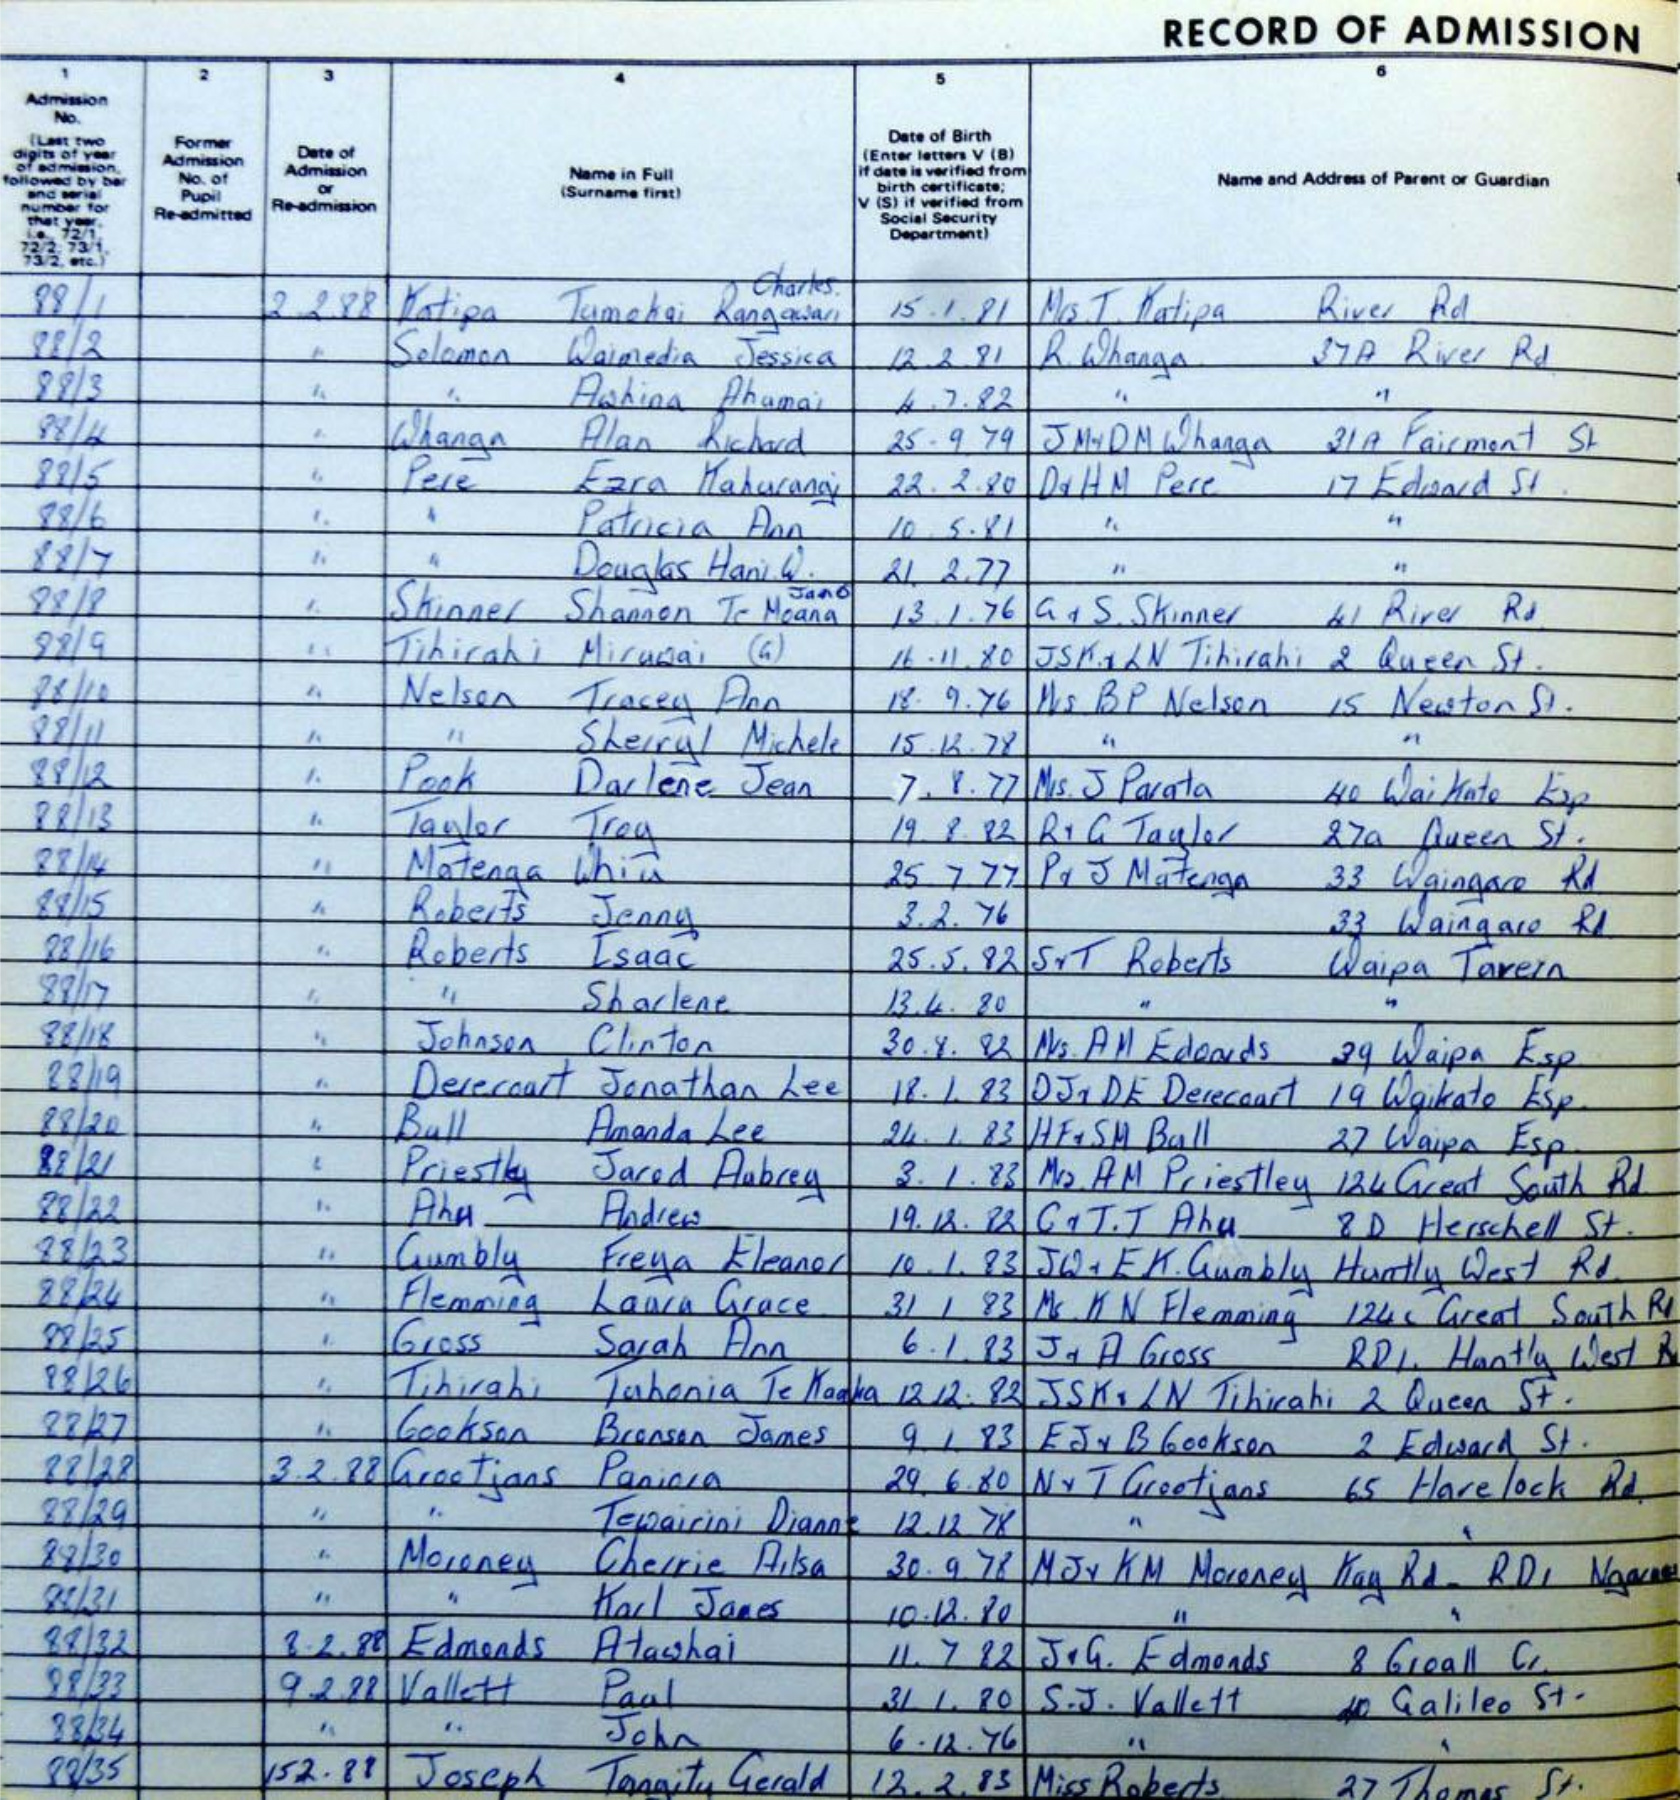 RECORD OF ADMISSION
1 2 3 4 5 6
Admission No. (Last two digits of year of admission, followed by bar and serial number for that year, i.e. 72/1, 72/2, 73/1, 73/2, etc.)
Former Admission No. of Pupil Re-admitted
Date of Admission or Re-admission
Name in Full (Surname first)
Date of Birth (Enter letters V (B) if date is verified from birth certificate; V (S) if verified from Social Security Department)
Name and Address of Parent or Guardian
Charles.
88/1 2.2.88 Katipa Tumokai Rangawari 15.1.81 Mrs. T. Katipa River Rd
88/2 " Solomon Waimedia Jessica 12.2.81 R. Whanga 37A River Rd
88/3 " " Awhina Ahumai 4.7.82 " "
88/4 " Whanga Alan Richard 25.9.79 JM+DM Whanga 31A Fairmont St
88/5 " Pere Ezra Kahurangi 22.2.80 D+HM Pere 17 Edward St.
88/6 " " Patricia Ann 10.5.81 " "
88/7 " " Douglas Hani W. 21.2.77 " "
Jane
88/8 " Skinner Shannon Te Moana 13.1.76 G+S. Skinner 41 River Rd
88/9 " Tihirahi Miruwai (G) 16.11.80 JSK+LN Tihirahi 2 Queen St.
88/10 " Nelson Tracey Ann 18.9.76 Ms BP Nelson 15 Newton St.
88/11 " " Sherryl Michele 15.12.78 " "
88/12 " Pook Darlene Jean 7.8.77 Mrs. J Parata 40 Waikato Esp
88/13 " Taylor Troy 19.8.82 R+G Taylor 27a Queen St.
88/14 " Matenga Whiu 25.7.77 P+J Matenga 33 Waingaro Rd
88/15 " Roberts Jenny 3.2.76 33 Waingaro Rd
88/16 " Roberts Isaac 25.5.82 S+T Roberts Waipa Tavern
88/17 " " Sharlene 13.4.80 " "
88/18 " Johnson Clinton 30.8.82 Ms. AM Edwards 39 Waipa Esp
88/19 " Derecourt Jonathan Lee 18.1.83 DJ+DE Derecourt 19 Waikato Esp.
88/20 " Bull Amanda Lee 24.1.83 HF+SM Bull 27 Waipa Esp.
88/21 " Priestly Jarod Aubrey 3.1.83 Mrs. AM Priestley 124 Great South Rd
88/22 " Ahu Andrew 19.12.82 C+T.T Ahu 8D Herschell St.
88/23 " Gumbly Freya Eleanor 10.1.83 JW+EK. Gumbly Huntly West Rd.
88/24 " Flemming Laura Grace 31 1 83 Ms KN Flemming 124c Great South Rd
88/25 " Gross Sarah Ann 6.1.83 J+A Gross RD1. Huntly West R
88/26 " Tihirahi Tuhonia Te Kaaka 12.12.82 JSK+LN Tihirahi 2 Queen St.
88/27 " Cookson Bronson James 9.1.83 EJ+B Cookson 2 Edward St.
88/28 3.2.88 Grootjans Paniora 29.6.80 N+T Grootjans 65 Havelock Rd.
88/29 " " Tewairini Dianne 12.12.78 " "
88/30 " Moroney Cherrie Ailsa 30.9.78 MJ+KM Moroney Kay Rd- RD1
88/31 " " Karl James 10.12.80 " "
88/32 8.2.88 Edmonds Atawhai 11.7 82 J+G. Edmonds 8 Croall Cr.
88/33 9.2.88 Vallett Paul 31.1.80 S.J. Vallett 40 Galileo St.
88/34 " " John 6.12.76 " "
88/35 152.88 Joseph Tangitu Gerald 12.2.83 Miss Roberts 27 Thomas St.